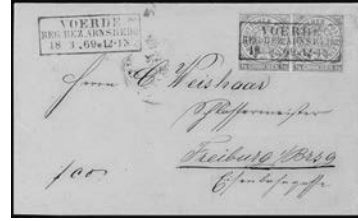 VOERDE
REG. BEZ. ARNSBERG
18 3 69 12-1N
VOERDE
REG. BEZ. ARNSBERG
18 69 12-1N
C Weishaar
Schlossermeister
Freiburg / Brsg
Eisenbahngasse
fco.